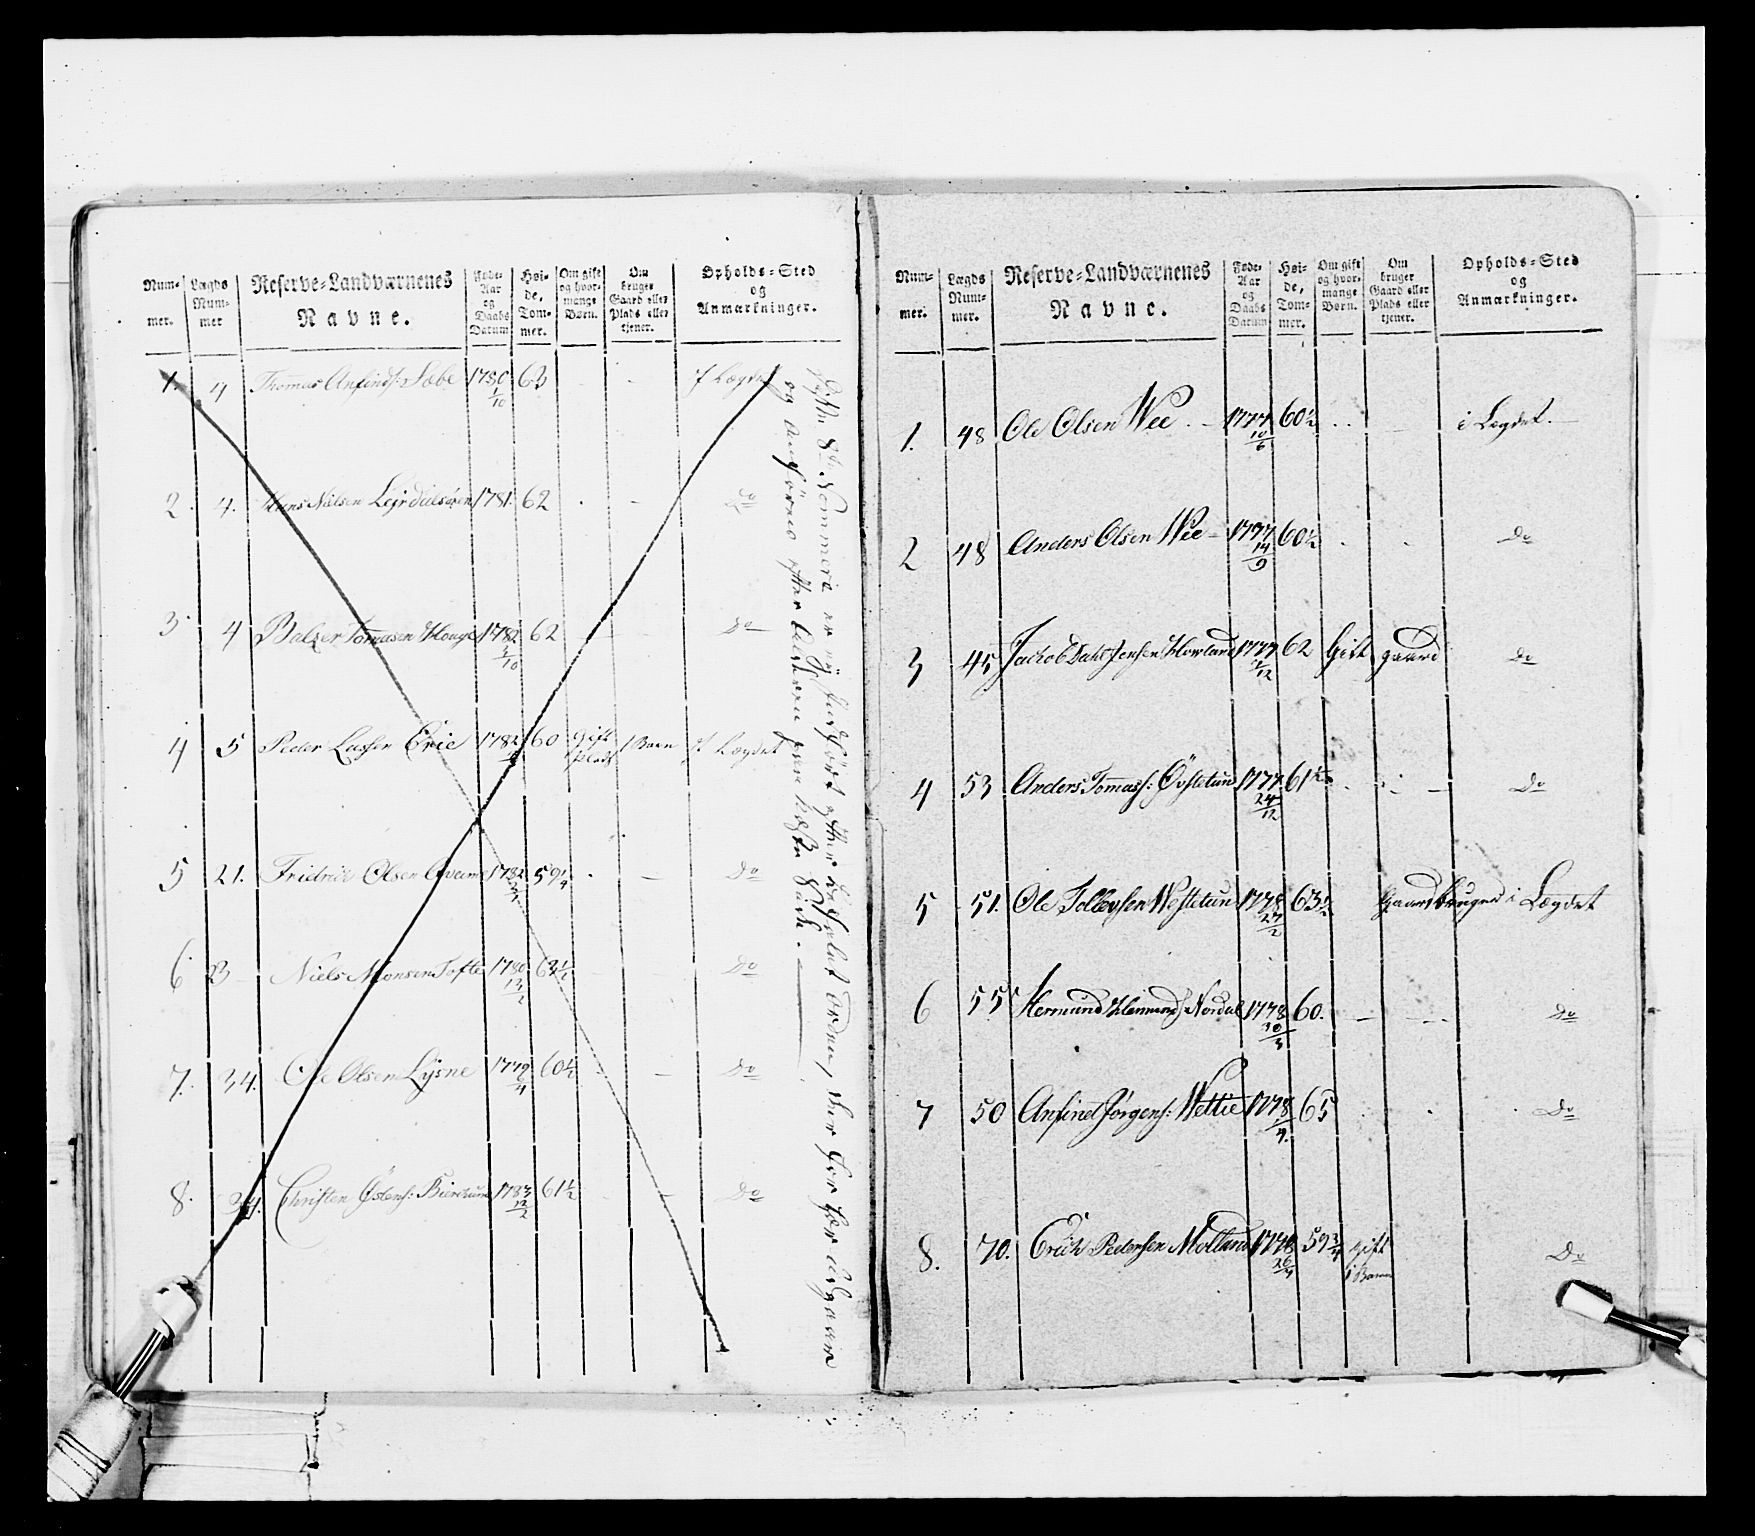 Num-
mer.
Lægds
Num-
mer
Reserve-Landværnenes
Navne.
Føde-
Aar
og
Daabs
Datum
Høi-
de,
Tom-
mer.
Om gift
og hvor-
mange
Børn.
Om
bruger
Gaard eller
Plads eller
tjener.
Opholds-Sted
og
Anmærkninger.
1. 4 Thomas Anfinds: Sæbe 1780 1/10 63 - - i Lægdet
2. 4. Hans Nielsen Leirdalsøren 1781. 62 - - Do
3 4 Balzer Tomasen Houge 1782 3/10 62 - - Do
4 5 Peder Lassen Erie 1782 60 Gift Plads 1 Barn i Lægdet
5 21. Fridrich Olsen 1782 59 1/4 - - Do
6 23 Niels Monsen Tofte 1780 13/2 63 1/2 - Do
7. 34. Ole Olsen Lysne 1779 6/4 60 1/2 - - Do
8. 34. Christen Østens: 1783 12/2 61 1/2 - - Do
8te Nommere er indført efter Orden, der for her udgaaer
og anføres efter paa næste Side.
Num-
mer.
Lægds
Num-
mer.
Reserve-Landværnenes
Navne.
Føde-
Aar
og
Daabs
Datum
Høi-
de,
Tom-
mer.
Om gift
og hvor-
mange
Børn.
Om
bruger
Gaard eller
Plads eller
tjener.
Opholds-Sted
og
Anmærkninger.
1. 48 Ole Olsen Wee. - 1777 10/6 60 1/2 - - i Lægdet. -
2 48 Anders Olsen Wee - 1777 14/9 60 1/2 - - Do
3 45 Jachob Dahl Jensen Hovland 1777 1/12 62 Gift gaard Do
4 53 Anders Tomass: Øvstetun 1777. 24/12 61 1/2 - - Do
5 51. Ole Tollevsen Westetun 1778 27/2 63 1/2 Gaardbruger i Lægdet
6 55 Hermund Nordal 1778 30/3 60. - - Do
7 50 Anfind Jørgens: Wettie 1778 /4. 65 - - Do
8. 70. Erich Pedersen Molland 1778 26/4 59 3/4 Gift 1 Barn Do